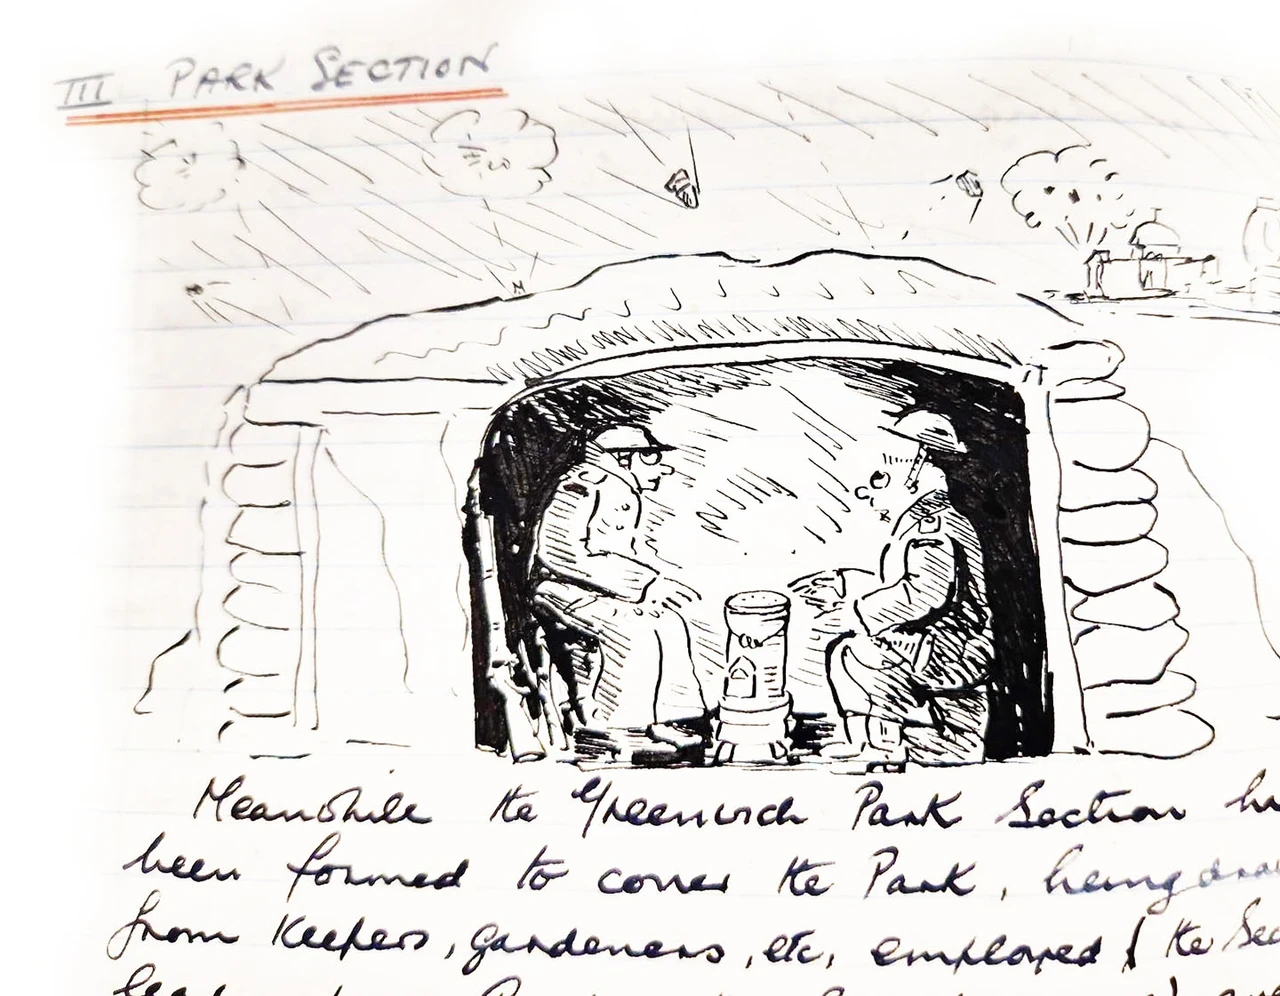 III PARK SECTION
Meanwhile the Greenwich Park Section
been formed to cover the Park, being
from Keepers, gardeners, etc, employed ( the